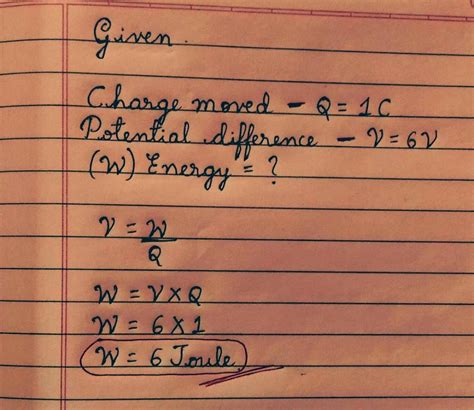 Given.
Charge moved - Q = 1 C
Potential difference - V = 6V
(W) Energy = ?
V = W
Q
W = V × Q
W = 6 × 1
W = 6 Joule